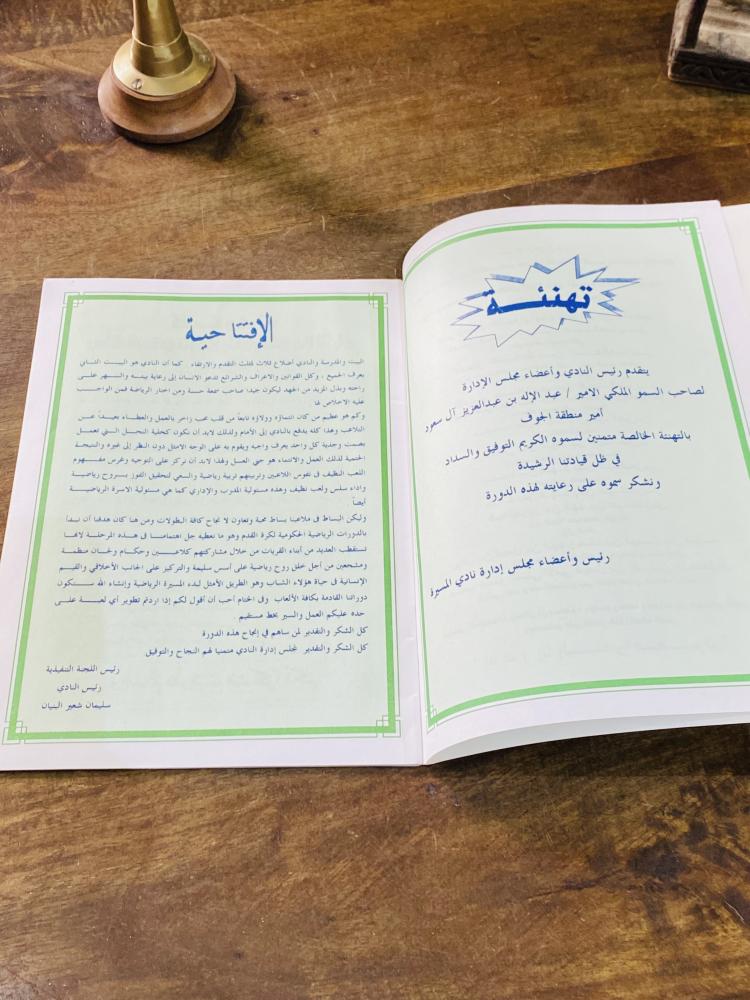 تهنئـــة
يتقدم رئيس النادي وأعضاء مجلس الإدارة
لصاحب السمو الملكي الامير / عبد الإله بن عبدالعزيز آل سعود
أمير منطقة الجوف
بالتهنئة الخالصة متمنين لسموه الكريم التوفيق والسداد
في ظل قيادتنا الرشيدة
ونشكر سموه على رعايته لهذه الدورة
رئيس وأعضاء مجلس إدارة نادي المسيرة
الإفتتاحية
البيت والمدرسة والنادي أضلاع ثلاث لمثلث التقدم والارتقاء كما أن النادي هو البيت الثاني
يعرف الجميع ، وكل القوانين والاعراف والشرائع تدعو الانسان إلى رعاية بيته والسهر على
راحته وبذل المزيد من الجهد ليكون جيدا صاحب سمعة حسنة ومن اختار الرياضة فمن الواجب
عليه الاخلاص لها
وكم هو عظيم من كان انتماؤه وولاؤه نابعاً من قلب محب زاخر بالعمل والعطاء بعيداً عن
التلاعب وهذا كله يدفع بالنادي إلى الأمام ولذلك لابد أن نكون كخلية النحل التي تعمل
بصمت وجدية كل واحد يعرف واجبه ويقوم به على الوجه الامثل دون النظر إلى غيره والنتيجة
الحتمية لذلك العمل والانتماء هو جني العسل ولهذا لابد أن نركز على التوجيه وغرس مفهوم
اللعب النظيف في نفوس اللاعبين وتربيتهم تربية رياضية والسعي لتحقيق الفوز بروح رياضية
واداء سلس ولعب نظيف وهذه مسئولية المدرب والإداري كما هي مسئولية الاسرة الرياضية
أيضاً
وليكن البساط في ملاعبنا بساط محبة وتعاون لا نجاح كافة البطولات ومن هنا كان هدفنا أن نبدأ
بالدورات الرياضية الحكومية لكرة القدم وهو ما نعطيه جل اهتمامنا في هذه المرحلة لانها
تستقطب العديد من أبناء القريات من خلال مشاركتهم كلاعبين وحكام ولجان منظمة
ومشجعين من أجل خلق روح رياضية على أسس سليمة والتركيز على الجانب الأخلاقي والقيم
الإنسانية في حياة هؤلاء الشباب وهو الطريق الأمثل لبدء المسيرة الرياضية وإنشاء الله ستكون
دوراتنا القادمة بكافة الألعاب وفي الختام أحب أن أقول لكم إذا اردتم تطوير أي لعبة على
حده عليكم العمل والسير بخط مستقيم
كل الشكر والتقدير لمن ساهم في إنجاح هذه الدورة
كل الشكر والتقدير لمجلس إدارة النادي متمنيا لهم النجاح والتوفيق
رئيس اللجنة التنفيذية
رئيس النادي
سليمان شعير البنيان